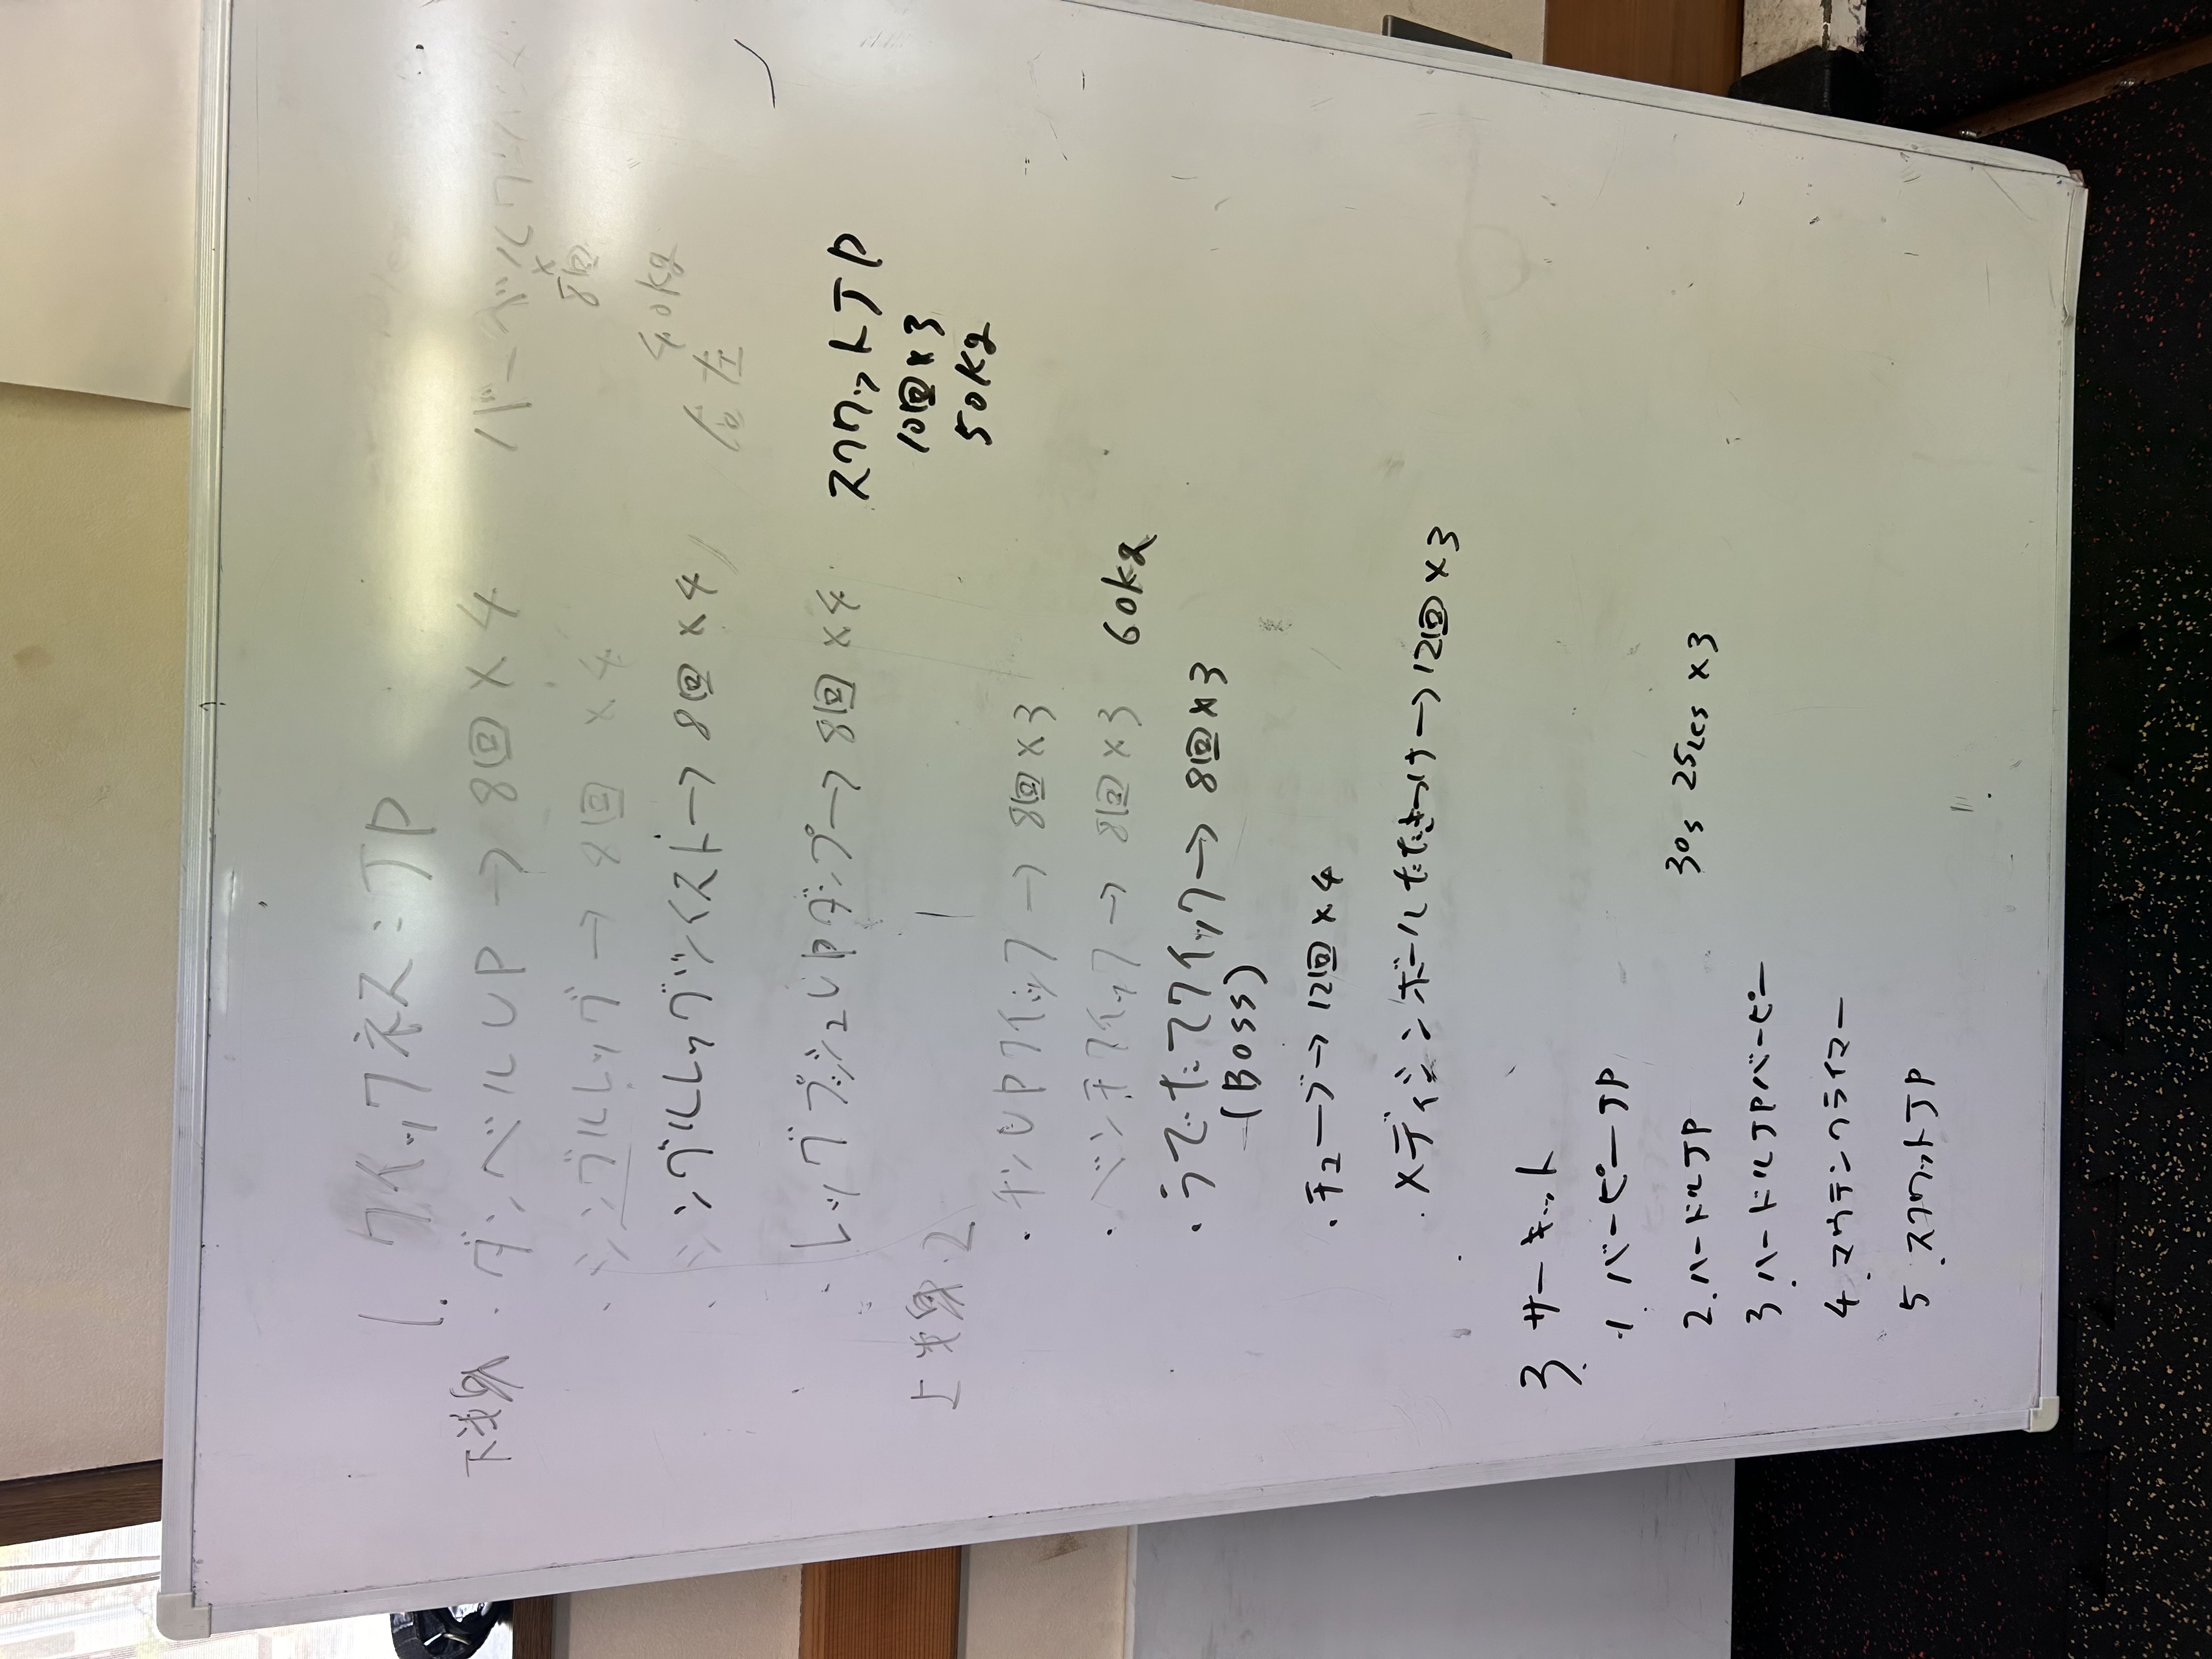 1. クイックネス:JP
下半身 ・ダンベルUP → 8回×4 バーベルワ
×
8回
・シングルレッグ → 8回×4 40kg
・シングルレッグツイスト → 8回×4 右左
・レッグプッシュUPジャンプ → 8回×4 スクワットJP
10回×3
50kg
上半身.2
・チンUPクイック → 8回×3
・ベンチクイック → 8回×3 60kg
・うでたてクイック → 8回×3
(Boss)
・チューブ → 12回×4
・メディシンボールたたきつけ → 12回×3
3. サーキット
1. バーピーJP
2. ハードルJP 30s 25 ×3
3. ハードルJPバーピー
4. マウテンクライマー
5. スクワットJP